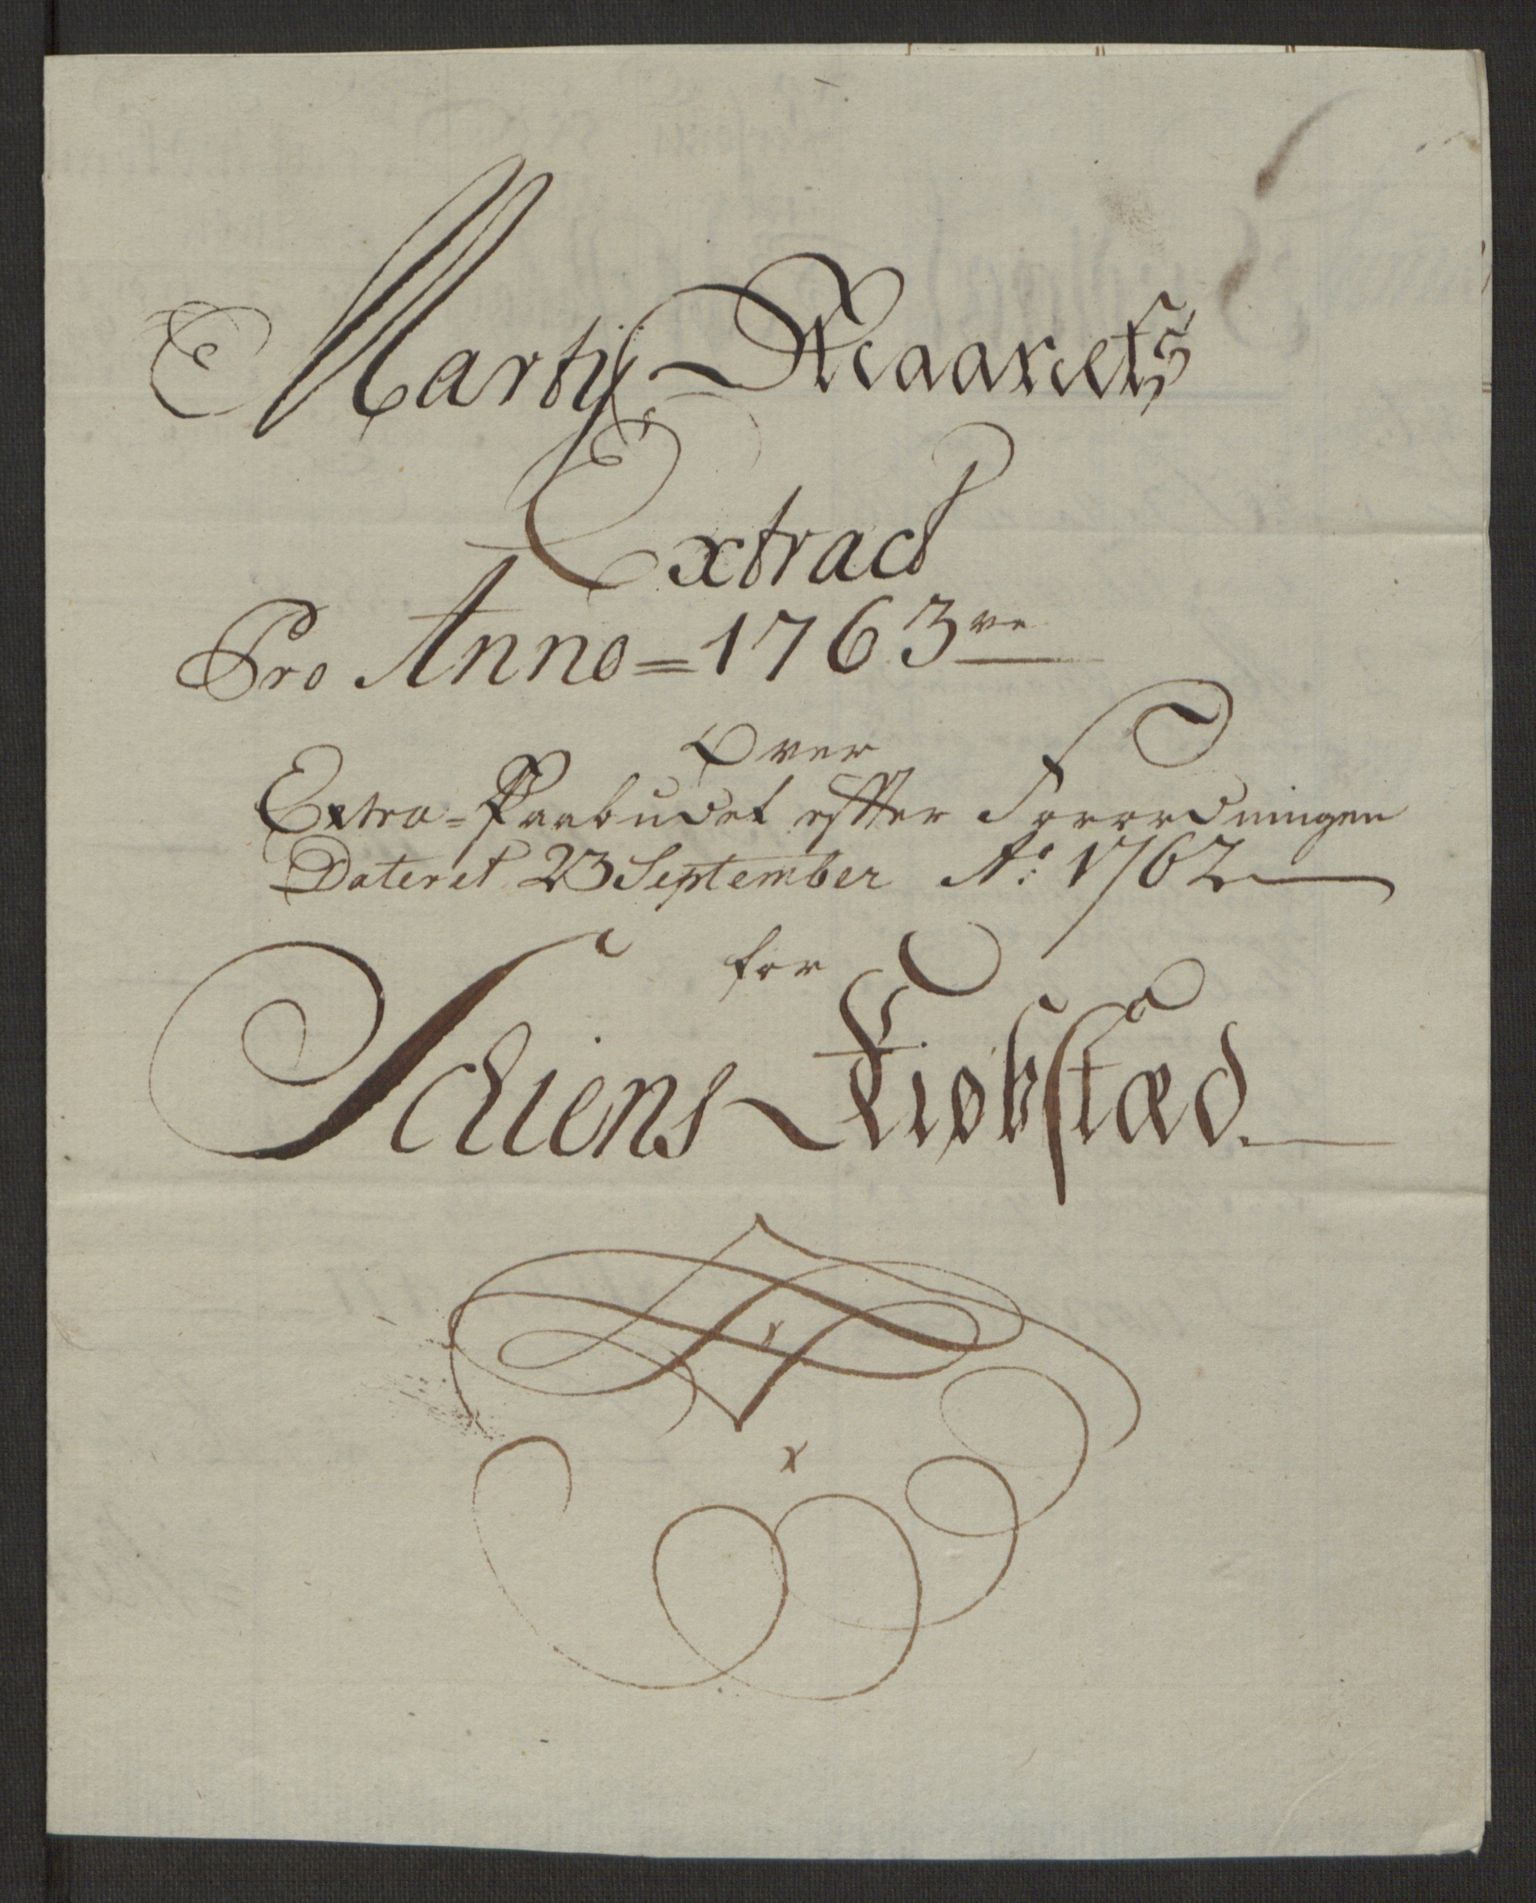 Martij Maanets
Extract
Pro Anno = 1763 ve
Over
Extra = Paabudet efter Forordningen
Dateret 23 September Ao: 1762
for
Schiens Kiøbstæd.